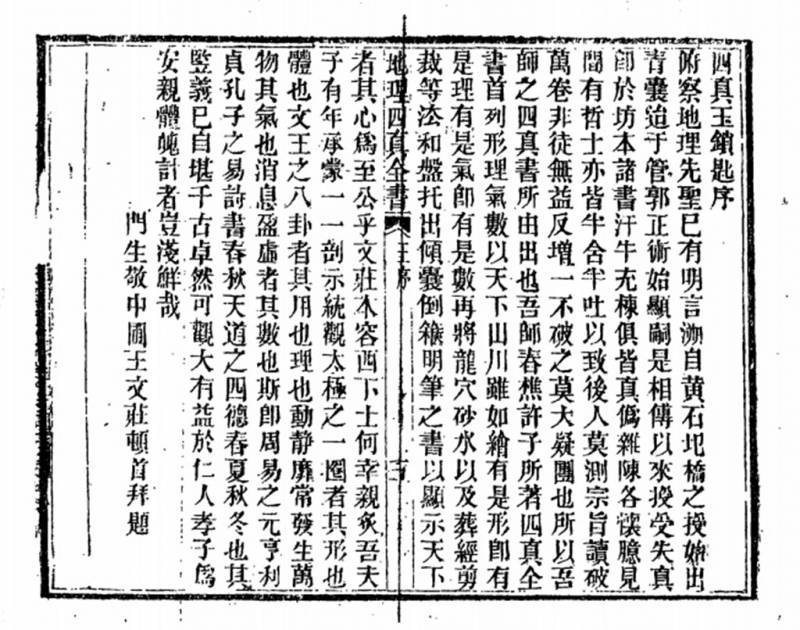 四真玉鎖匙序
俯察地理先聖已有明言溯自黃石圯橋之授始出
青囊迨于管郭正術始顯嗣是相傳以來授受失真
卽於坊本諸書汗牛充棟俱皆真僞雜陳各懷臆見
間有哲士亦皆半舍半吐以致後人莫測宗旨讀破
萬卷非徒無益反增一不破之莫大疑團也所以吾
師之四真書所由出也吾師春樵許子所著四真全
書首列形理氣數以天下山川雖如繪有是形卽有
是理有是氣卽有是數再將龍穴砂水以及葬經剪
裁等法和盤托出傾囊倒籢明筆之書以顯示天下
地理四真全書 王序
者其心爲至公乎文莊本容西下士何幸親炙吾夫
子有年承蒙一一剖示統觀太極之一圈者其形也
體也文王之八卦者其用也理也動静靡常發生萬
物其氣也消息盈虛者其數也斯卽周易之元亨利
貞孔子之易詩書春秋天道之四德春夏秋冬也其
豎義已自堪千古卓然可觀大有益於仁人孝子爲
安親體魄計者豈淺鮮哉
門生敬中圃王文莊頓首拜題